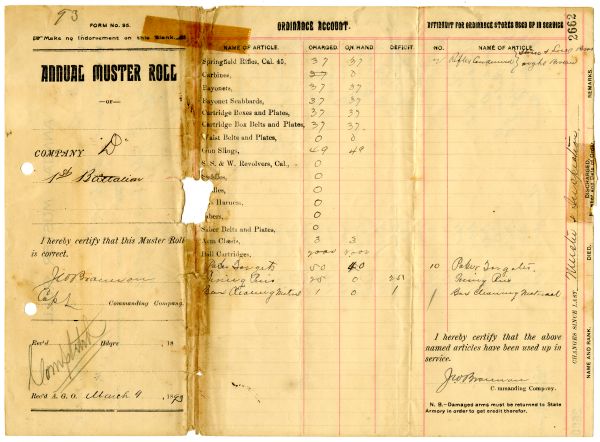 93
FORM No. 95.
Make no Indorsement on this Blank.
ANNUAL MUSTER ROLL
—OF—
COMPANY "D"
1st Battalion
I hereby certify that this Muster Roll
is correct.
Capt
Commanding Company.
Rec'd Hdqrs. 18
Rec'd A. G. O. March 9 1893
ORDNANCE ACCOUNT.
NAME OF ARTICLE. CHARGED. ON HAND DEFICIT.
Springfield Rifles, Cal. 45, 37 37
Carbines, 37 0
Bayonets, 37 37
Bayonet Scabbards, 37 37
Cartridge Boxes and Plates, 37 37
Cartridge Box Belts and Plates, 37 37
Waist Belts and Plates, 0 0
Gun Slings, 49 49
S. S. & W. Revolvers, Cal., 0
Saddles, 0
0
Harness, 0
Sabers, 0
Saber Belts and Plates, 0
Arm Chests, 3 3
Ball Cartridges,
Targets 50 40
Firing Pins 25 0
Gun Cleaning Material 1 0 1
AFFIDAVIT FOR ORDNANCE STORES USED UP IN SERVICE
NO. NAME OF ARTICLE.
Rifles
10 Targets,
Firing Pins
1 Gun Cleaning Material
I hereby certify that the above
named articles have been used up in
service.
Commanding Company.
N. B.—Damaged arms must be returned to State
Armory in order to get credit therefor.
2662
REMARKS.
DISCHARGED.
DIED.
CHANGES SINCE LAST Muster & Inspection
NAME AND RANK.